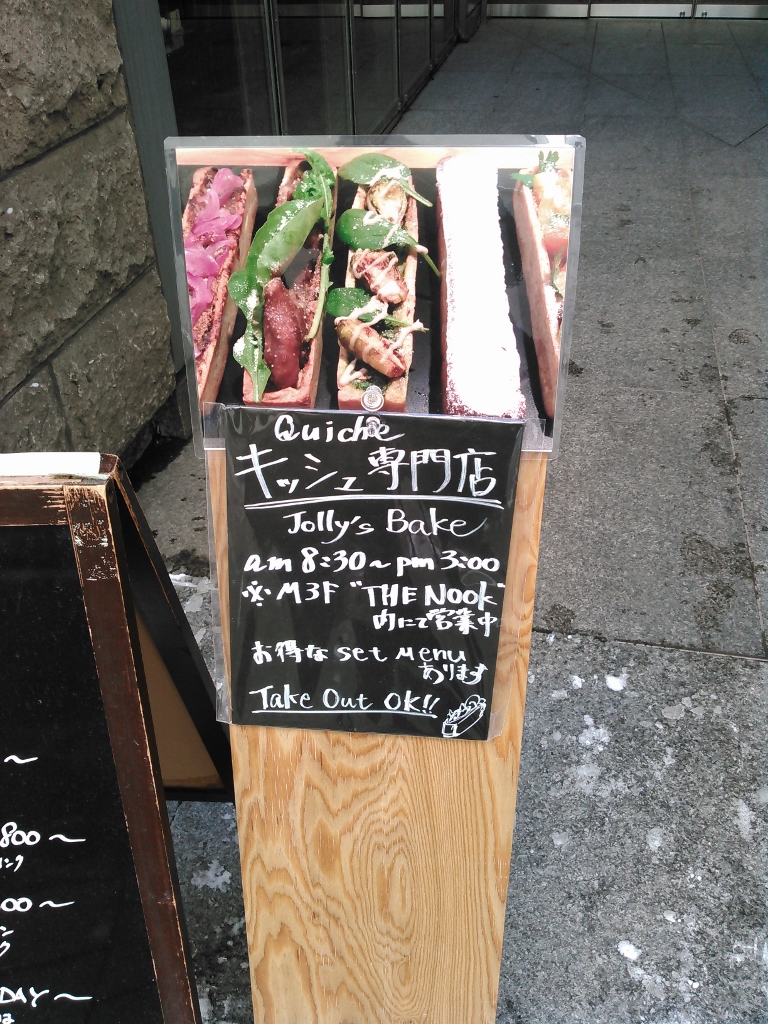 Quiche
キッシュ専門店
Jolly's Bake
am 8:30~pm 3:00
※M3F "THE NOOK"
内にて営業中
お得なset Menu
あります
Take Out OK!!
~
800~
00~
DAY~